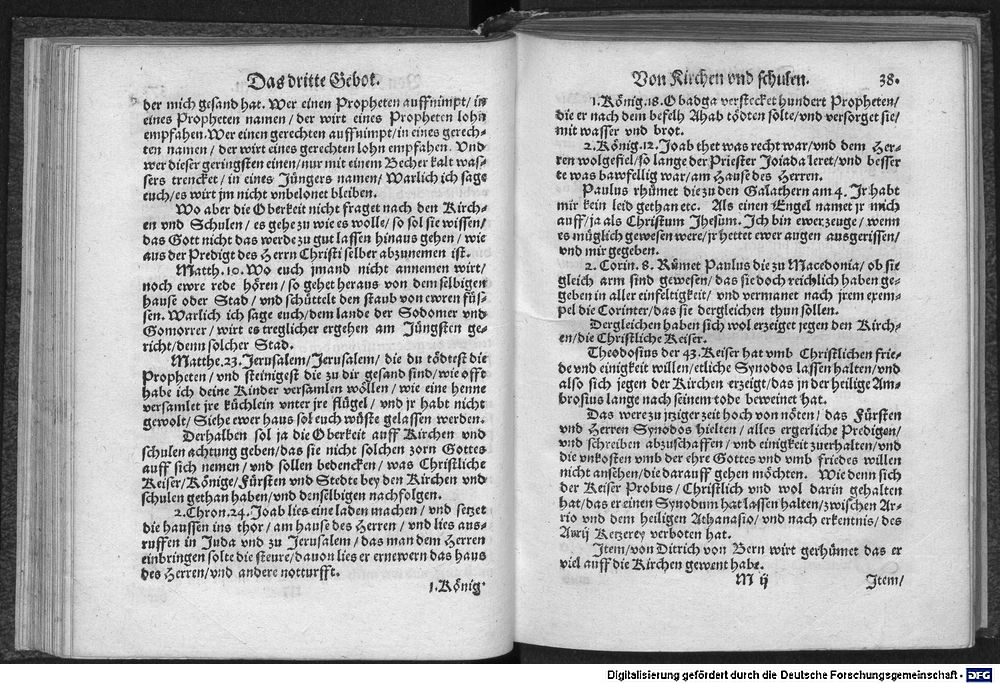 Das dritte Gebot.
der mich gesand hat. Wer einen Propheten auffnimpt/ in
eines Propheten namen/ der wirt eines Propheten lohn
empfahen. Wer einen gerechten auffnimpt/ in eines gerech-
ten namen/ der wirt eines gerechten lohn empfahen. Vnd
wer dieser geringsten einen/ nur mit einem Becher kalt was-
sers trencket/ in eines Jüngers namen/ Warlich ich sage
euch/ es wirt jm nicht vnbelonet bleiben.
Wo aber die Oberkeit nicht fraget nach den Kirch-
en vnd Schulen/ es gehe zu wie es wolle/ so sol sie wissen/
das Gott nicht das werde zu gut lassen hinaus gehen/ wie
aus der Predigt des Herrn Christi selber abzunemen ist.
Matth. 10. Wo euch jmand nicht annemen wirt/
noch ewre rede hören/ so gehet heraus von dem selbigen
hause oder Stad/ vnd schüttelt den staub von ewren füs-
sen. Warlich ich sage euch/ dem lande der Sodomer vnd
Gomorrer/ wirt es treglicher ergehen am Jüngsten ge-
richt/ denn solcher Stad.
Matthe. 23. Jerusalem/ Jerusalem/ die du tödtest die
Propheten/ vnd steinigest die zu dir gesand sind/ wie offt
habe ich deine Kinder versamlen wöllen/ wie eine henne
versamlet jre küchlein vnter jre flügel/ vnd jr habt nicht
gewolt/ Siehe ewer haus sol euch wüste gelassen werden.
Derhalben sol ja die Oberkeit auff Kirchen vnd
schulen achtung geben/ das sie nicht solchen zorn Gottes
auff sich nemen/ vnd sollen bedencken/ was Christliche
Keiser/ Könige/ Fürsten vnd Stedte bey den Kirchen vnd
schulen gethan haben/ vnd denselbigen nachfolgen.
2. Chron. 24. Joab lies eine laden machen/ vnd setzet
die haussen ins thor/ am hause des Herren/ vnd lies aus-
ruffen in Juda vnd zu Jerusalem/ das man dem Herren
einbringen solte die steure/ dauon lies er ernewern das haus
des Herren/ vnd andere notturfft.
1. König.
Von Kirchen vnd schulen. 38.
1. König. 18. Obadga verstecket hundert Propheten/
die er nach dem befelh Ahab tödten solte/ vnd versorget sie/
mit wasser vnd brot.
2. König. 12. Joab thet was recht war/ vnd dem Her-
ren wolgefiel/ so lange der Priester Joiada leret/ vnd besser
te was bawfellig war/ am Hause des Herren.
Paulus rhümet die zu den Galathern am 4. Jr habt
mir kein leid gethan etc. Als einen Engel namet jr mich
auff/ ja als Christum Jhesum. Ich bin ewer zeuge/ wenn
es müglich gewesen were/ jr hettet ewer augen ausgerissen/
vnd mir gegeben.
2. Corin. 8. Rümet Paulus die zu Macedonia/ ob sie
gleich arm sind gewesen/ das sie doch reichlich haben ge-
geben in aller einfeltigkeit/ vnd vermanet nach jrem exem-
pel die Corinter/ das sie dergleichen thun sollen.
Dergleichen haben sich wol erzeiget jegen den Kirch-
en/ die Christliche Keiser.
Theodosius der 43. Keiser hat vmb Christlichen frie-
de vnd einigkeit willen/ etliche Synodos lassen halten/ vnd
also sich jegen der Kirchen erzeigt/ das jn der heilige Am-
brosius lange nach seinem tode beweinet hat.
Das were zu jziger zeit hoch von nöten/ das Fürsten
vnd Herren Synodos hielten/ alles ergerliche Predigen/
vnd schreiben abzuschaffen/ vnd einigkeit zuerhalten/ vnd
die vnkosten vmb der ehre Gottes vnd vmb friedes willen
nicht ansehen/ die darauff gehen möchten. Wie denn sich
der Keiser Probus/ Christlich vnd wol darin gehalten
hat/ das er einen Synodum hat lassen halten/ zwischen Ar-
rio vnd dem heiligen Athanasio/ vnd nach erkentnis/ des
Arrij Ketzerey verboten hat.
Item/ von Ditrich von Bern wirt gerhümet das er
viel auff die Kirchen gewent habe.
M ij Item/
Digitalisierung gefördert durch die Deutsche Forschungsgemeinschaft - DFG